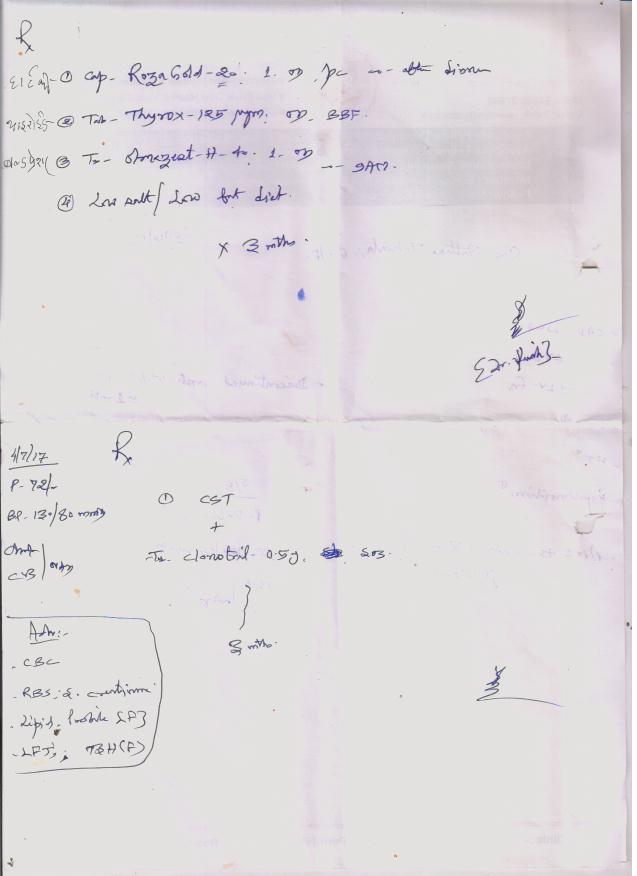 Rx
हार्ट की ① Cap- Roza Gold-20. 1. OD. pc --- after dinner
थाइरोईड ② Tab- Thyrox-125 mgm. OD. BBF.
③ Tb- Amezest-H-40. 1. OD --- 9AM.
④ Low salt/ Low fat diet.
x 3 mths.
{Dr.
4/7/17
Rx
P- 72/-
BP- 130/80 mmHg
① CST
+
Chest
CVS
Tb- Clonotril 0.5g. SOS.
3 mths.
Adv:-
- CBC
- RBS, S. creatinine
- Lipid Profile {F}
- LFTs, TSH(F)